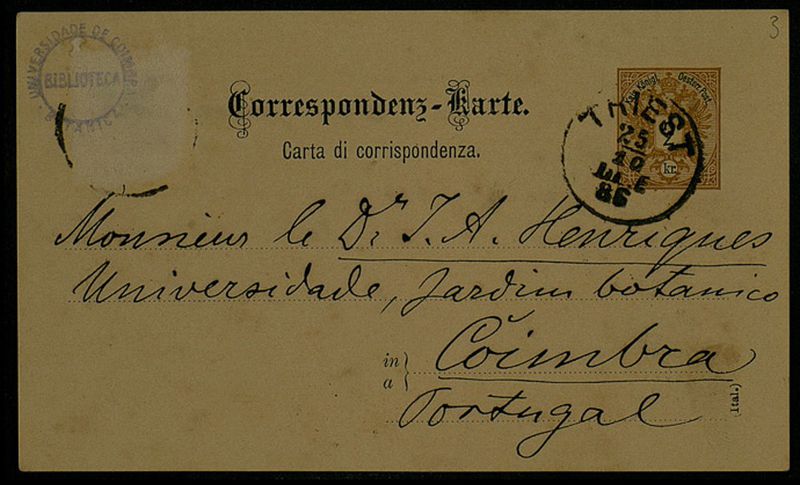 3
UNIVERSIDADE DE COIMBRA
BIBLIOTECA
BOTANICA
Correspondenz-Karte.
Carta di corrispondenza.
Königl. Oesterr. Post.
kr.
TRIEST
25
86
Monsieur le Dr J. A. Henriques
Universidade, Jardim botanico
in
a } Coimbra
Portugal
(Ital.)